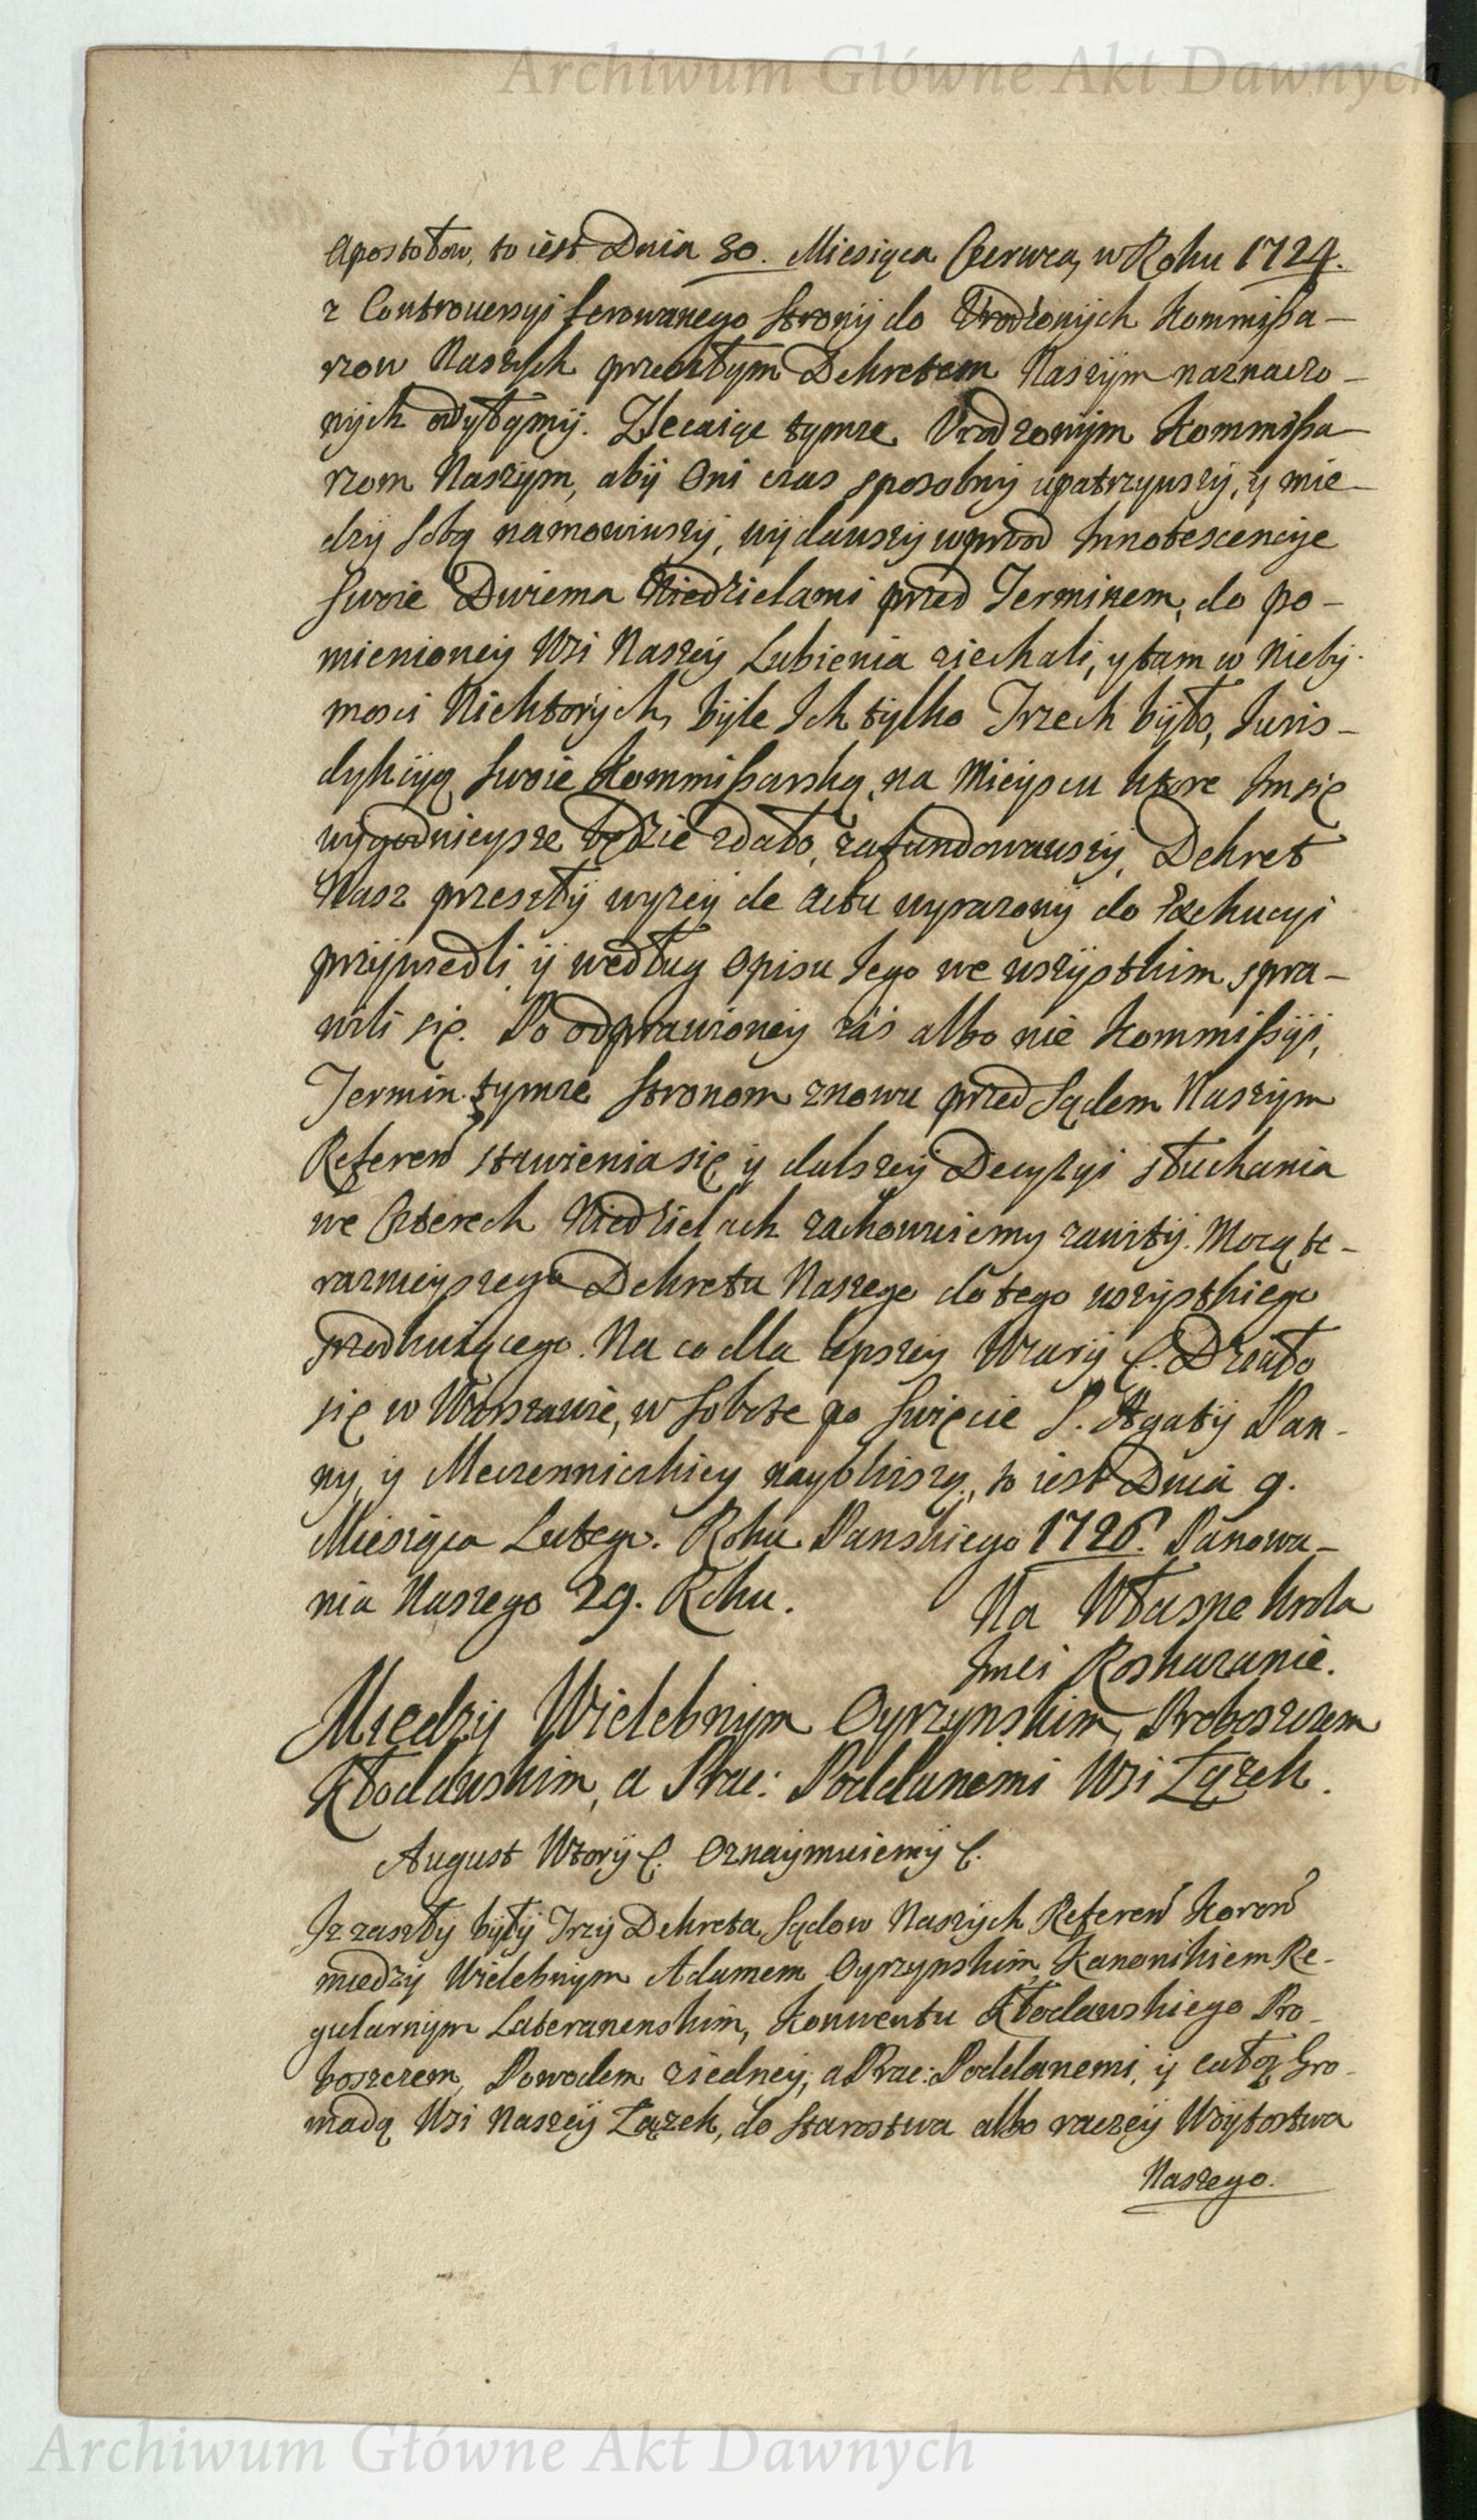 Archiwum Główne Akt Dawnych
Apostołow, to iest Dnia 30. Miesiąca Czerwca, w Roku 1724.
z Controuersyi ferowanego Strony do Urodzonych Kommissa-
rzow Naszych przeszłym Dekretem Naszym naznaczo-
nych odsyłamy. Zlecaiąc tymze Urodzonym Kommissa-
rzom Naszym, aby Oni czas sposobny upatrzywszy, y mie-
dzy sobą namowiwszy, wydawszy wprzod Innotescencye
swoie Dwiema Niedzielami przed Terminem, do po-
mienioney Wsi Naszey Lubienia ziechali, y tam w Nieby-
tnosci Niektorych, byle Ich tylko Trzech było, Juris-
dykcyą swoie Kommissarską, na Mieyscu ktore Im się
wygodnieysze będzie zdało, zafundowawszy, Dekret
Nasz przeszły wyzey de actu wyrazony do Exekucyi
przywiedli, y według Opisu Jego we wszystkim spra-
wili się. Po odprawioney zaś albo nie Kommissyi,
Termin tymze Stronom znowu przed Sądem Naszym
Referen stawienia się y dalszey Decyzyi słuchania
we Czterech Niedzielach zachowuiemy zawity. Mocą te-
raznieyszego Dekretu Naszego do tego wszystkiego
Na co dla lepszey Wiary &. Działo
się w Warszawie, w Sobotę po Swięcie S. Agaty Pan-
ny, y Meczenniczkiey naybliszą, to iest Dnia 9.
Miesiąca Lutego. Roku Panskiego 1726. Panowa-
nia Naszego 29. Roku.
Na Własne Krola
Jmci Roskazanie.
Miedzy Wielebnym Oyrzynskim, Proboszczem
Kłodawskim, a Prac: Poddanemi Wsi Łązek.
August Wtory &. Oznaymuiemy &.
Iz zaszły były Trzy Dekreta Sądow Naszych Referen Koron
miedzy Wielebnym Adamem Oyrzynskim, Kanonikiem Re-
gularnym Lateranenskim, Konwentu Kłodawskiego Pro-
boszczem, Powodem z iedney, a Prac: Poddanemi, y całą Gro-
madą Wsi Naszey Łązek, do Starostwa albo raczey Woytostwa
Naszego.
Archiwum Główne Akt Dawnych